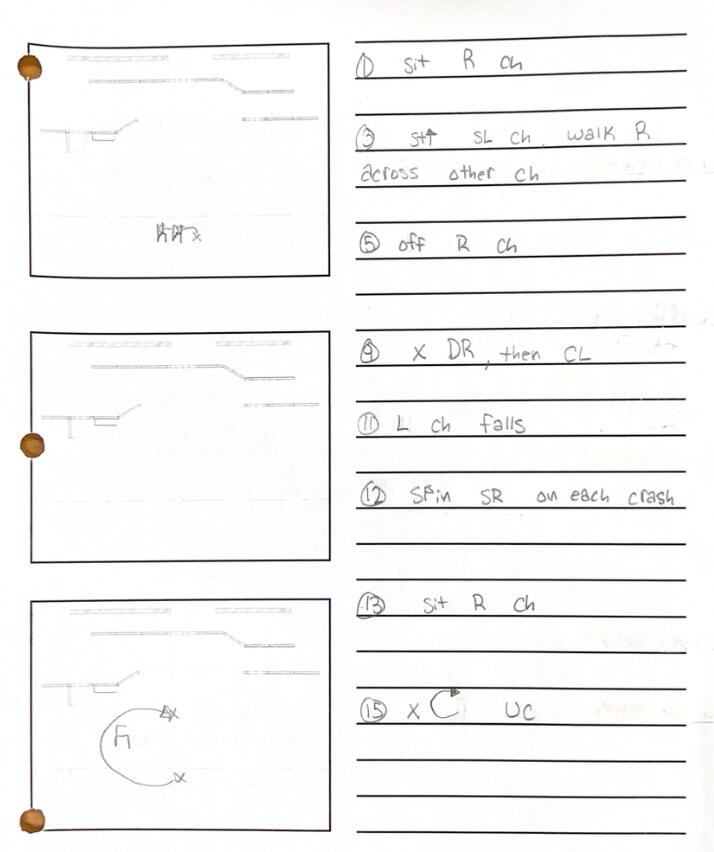 ① sit R ch
③ st↑ SL ch, walk R
across other ch
⑤ off R ch
⑨ X DR, then CL
⑪ L ch falls
⑫ spin SR on each crash
⑬ sit R ch
⑮ X UC